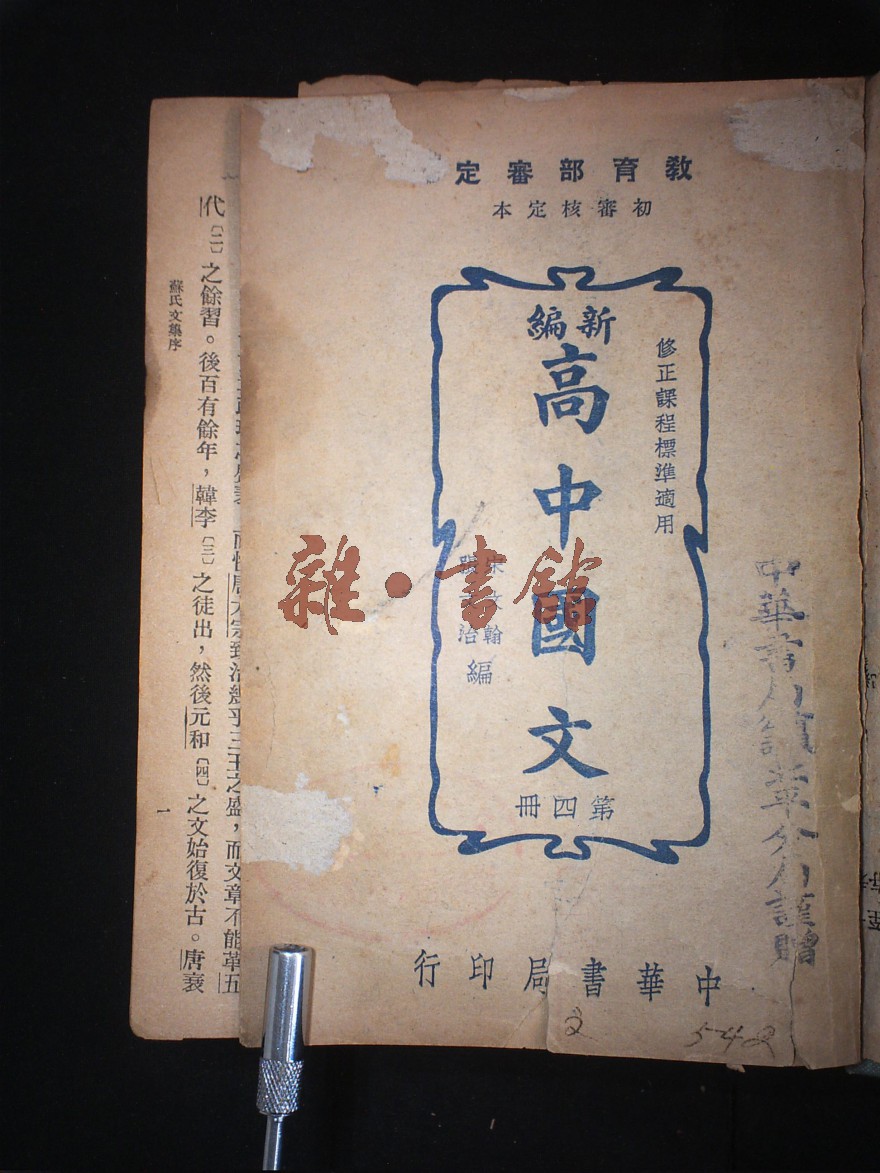 教育部審定
初審核定本
修正課程標準適用
新編
高中國文
第四冊
宋文翰
治
編
中華書局印行
中華書局
分局謹贈
2
542
雜·書館
而文章不能革五
代〔二〕之餘習。後百有餘年，韓李〔三〕之徒出，然後元和〔四〕之文始復於古。唐衰
蘇氏文集序
一